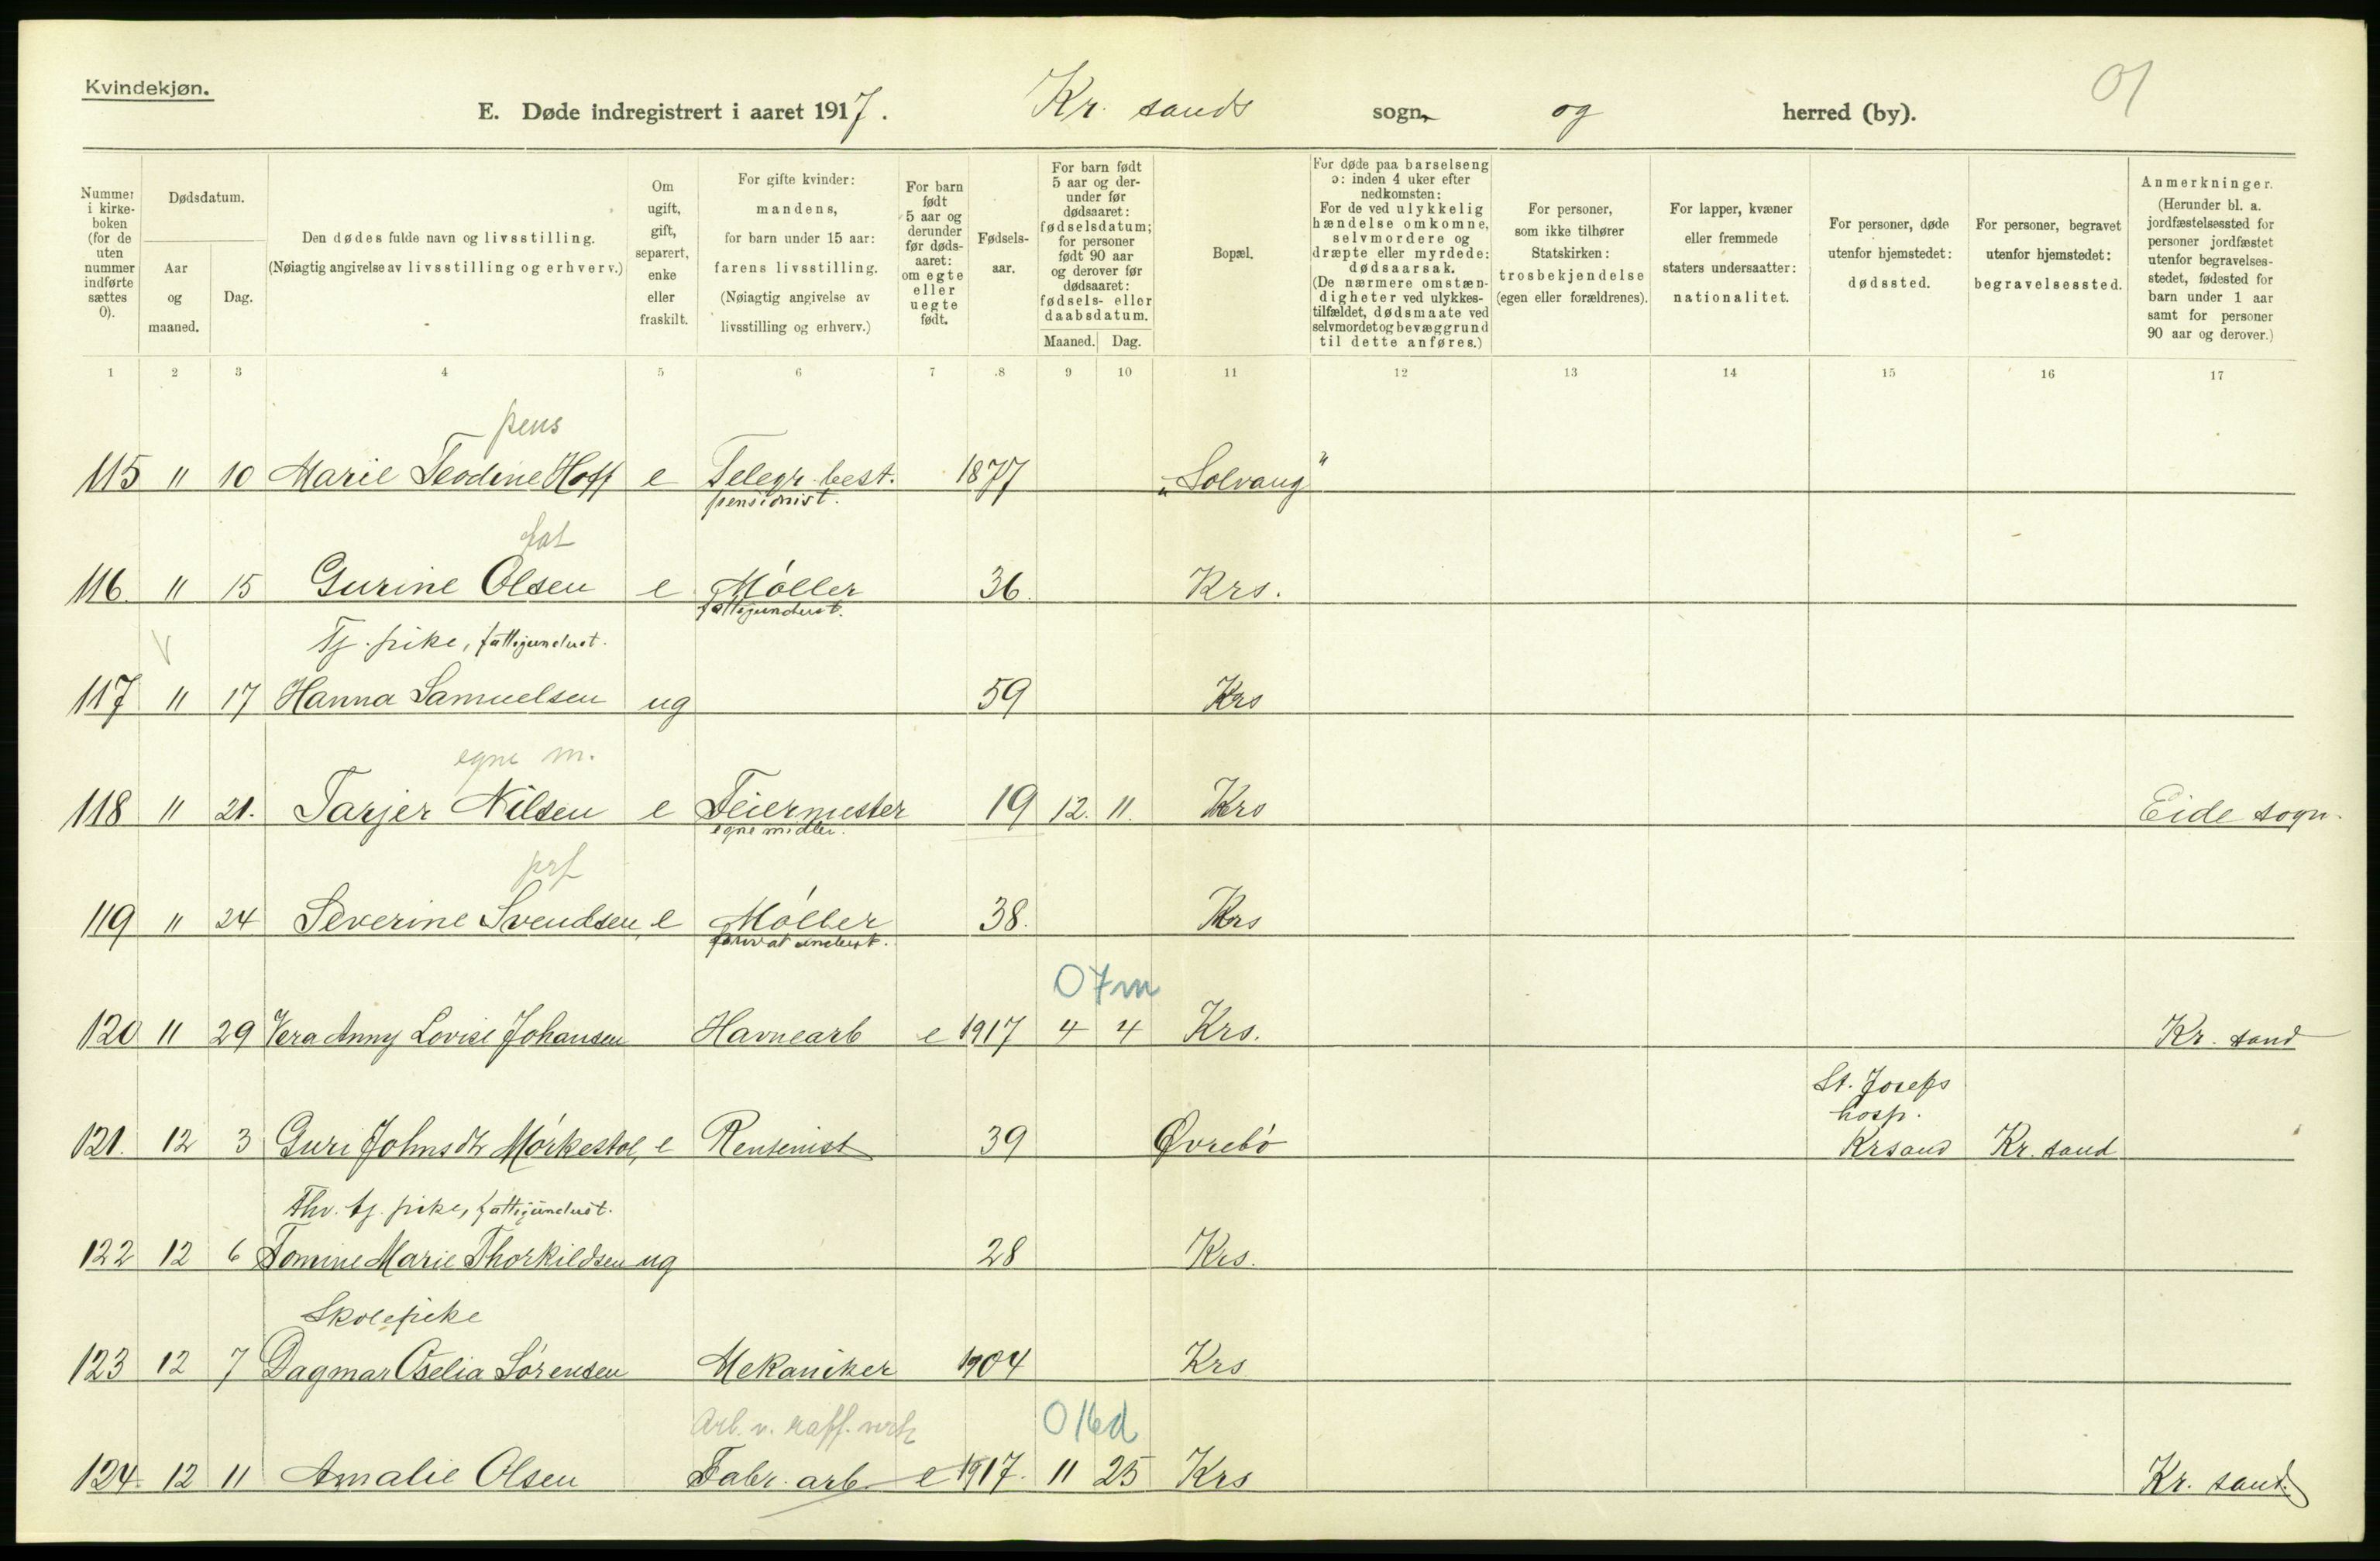 Kvindekjøn.
E. Døde indregistrert i aaret 1917. Kr. sands sogn og herred (by).
01
Nummer i kirkeboken (for de uten nummer indførte sættes 0).
Dødsdatum.
Aar og maaned.
Dag.
Den dødes fulde navn og livsstilling.
(Nøiagtig angivelse av livsstilling og erhverv.)
Om ugift, gift, separert, enke eller fraskilt.
For gifte kvinder: mandens, for barn under 15 aar: farens livsstilling. (Nøiagtig angivelse av livsstilling og erhverv.)
For barn født 5 aar og derunder før dødsaaret: om egte eller uegte født.
Fødselsaar.
For barn født 5 aar og derunder før dødsaaret: fødselsdatum; for personer født 90 aar og derover før dødsaaret: fødsels- eller daabsdatum.
Maaned. Dag.
Bopæl.
For døde paa barselseng ɔ: inden 4 uker efter nedkomsten: For de ved ulykkelig hændelse omkomne, selvmordere og dræpte eller myrdede: dødsaarsak. (De nærmere omstændigheter ved ulykkestilfældet, dødsmaate ved selvmordet og bevæggrund til dette anføres.)
For personer, som ikke tilhører Statskirken: trosbekjendelse (egen eller forældrenes).
For lapper, kvæner eller fremmede staters undersaatter: nationalitet.
For personer, døde utenfor hjemstedet: dødssted.
For personer, begravet utenfor hjemstedet: begravelsessted.
Anmerkninger. (Herunder bl. a. jordfæstelsessted for personer jordfæstet utenfor begravelsesstedet, fødested for barn under 1 aar samt for personer 90 aar og derover.)
1 2 3 4 5 6 7 8 9 10 11 12 13 14 15 16 17
pens
115 " 10 Marie Teodine Hoff e Telegr. best. 1877 "Solvang"
pensionist.
fat
116. " 15 Gurine Olsen e Møller 36. Krs.
fattigunderst.
Tj. pike, fattigunderst.
117 " 17 Hanna Samuelsen ug 59 Krs
egne m.
118 " 21. Tarjer Nilsen e Feiermester 19 12. 11. Krs Eide sogn.
egne midler.
prf
119 " 24 Severine Svendsen e Møller 38. Krs
privat underst.
0 7m
120 11 29 Vera Anny Lovise Johansen Havnearb e 1917 4 4 Krs. Kr. sand
St. Josefs
hosp.
121. 12 3 Guri Johnsdtr Mørkestøl, e Rentenist 39 Øvrebø Krsand Kr. sand
Fhv. tj. pike, fattigunderst.
122 12 6 Tomine Marie Thorkildsen ug 28 Krs.
Skolepike
123 12 7 Dagmar Oselia Sørensen Mekaniker 1904 Krs
Arb. v. raff. verk 0 16d
124. 12 11 Amalie Olsen Fabr. arb. e 1917. 11 25 Krs Kr. sand.